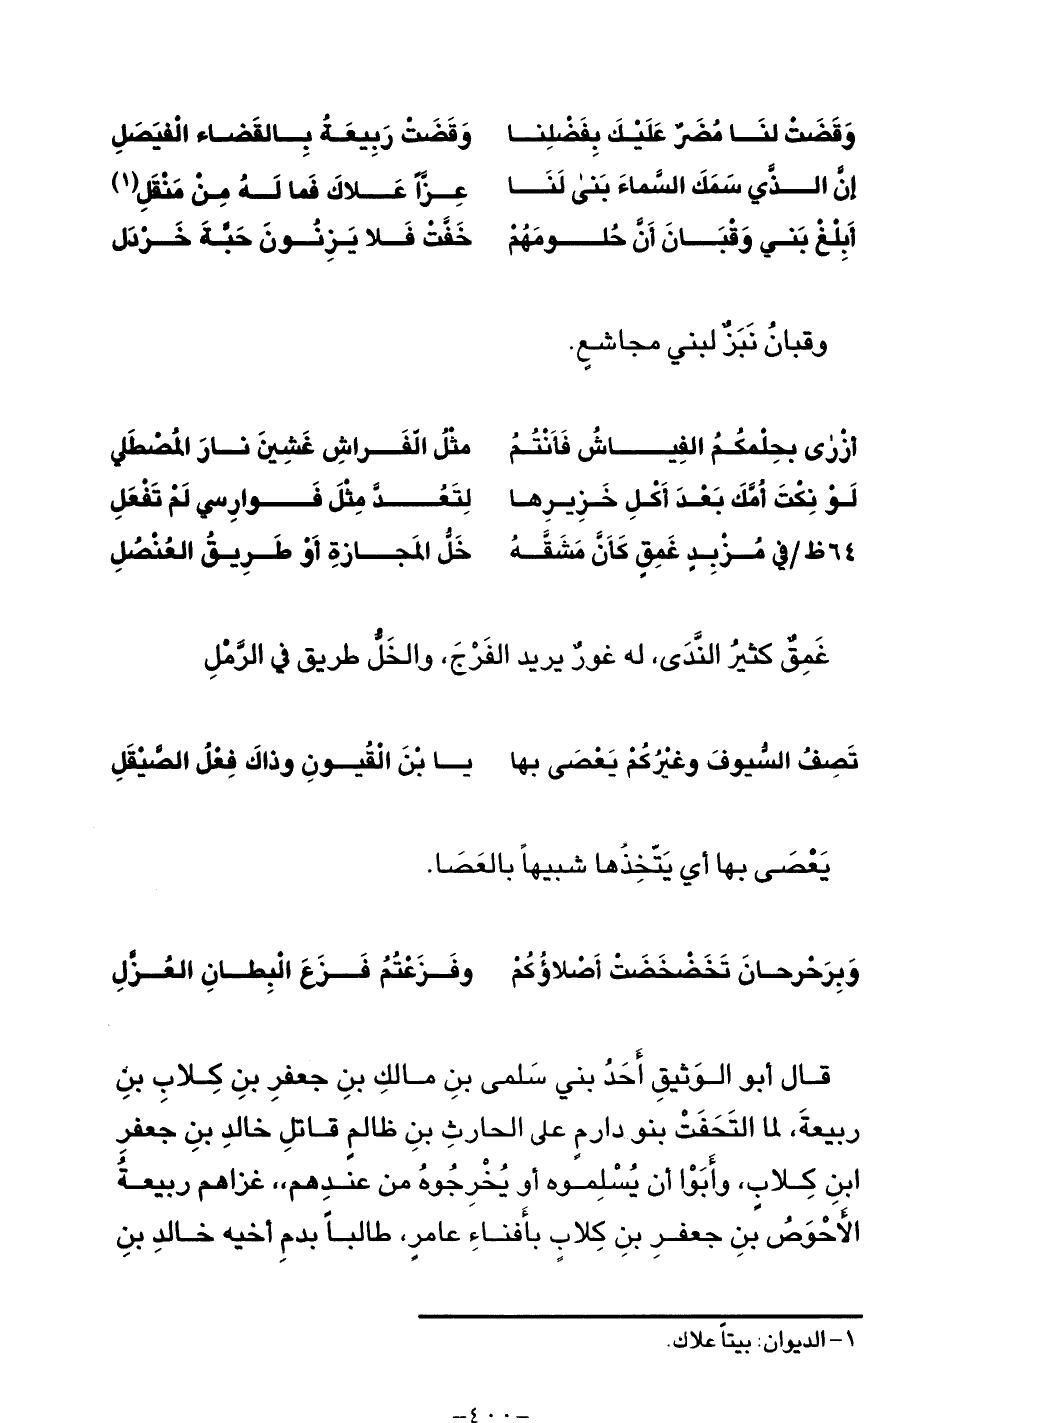 وَقَضَتْ لنَا مُضَرٌ عَلَيْكَ بِفَضْلِنا وَقَضَتْ رَبِيعَةُ بِالقَضاء الْفَيَصَلِ
إنَّ الذَّي سَمَكَ السَّماءَ بَنىٰ لَنَا عِزَّاً عَلاكَ فَما لَهُ مِنْ مَنْقَلِ(١)
أَبِلْغْ بَني وَقْبَانَ أنَّ حُلومَهُمْ خَفَّتْ فَلا يَزِنُونَ حَبَّةَ خَرْدَل
وقبانُ نَبَزٌ لبني مجاشعٍ.
أزْرٰى بحِلْمكُمُ الفِياشُ فَأنْتُمُ مثْلُ الْفَراشِ غَشِينَ نارَ المُصْطَلي
لَوْ نِكْتَ أمَّكَ بَعْدَ أكْلِ خَزِيرِها لِتَعُدَّ مِثْلَ فَوارِسي لَمْ تَفْعَلِ
٦٤ظ/في مُزْبِدٍ غَمِقٍ كَأنَّ مَشَقَّهُ خَلُّ المَجازةِ أوْ طَرِيقُ العُنْصُلِ
غَمِقٌ كثيرُ النَّدَى، له غورٌ يريد الفَرْجَ، والخَلُّ طريق في الرَّمْلِ
تَصِفُ السُّيوفَ وغيْرُكُمْ يَعْصَى بها يا بْنَ الْقُيونِ وذاكَ فِعْلُ الصَّيْقَلِ
يَعْصَى بها أي يَتّخِذُها شبيهاً بالعَصَا.
وَبِرَحْرحانَ تَخَضْخَضَتْ أصْلاؤُكُمْ وفَزَعْتُمُ فَزَعَ الْبِطانِ العُزَّلِ
قال أبو الوَثيقِ أَحَدُ بني سَلمى بنِ مالكِ بنِ جعفرِ بنِ كِلابِ بنِ
ربيعةَ، لما التَحَفَتْ بنو دارمٍ على الحارثِ بنِ ظالمٍ قاتلِ خالدِ بنِ جعفرِ
ابنِ كِلابٍ، وأَبَوْا أن يُسْلِموه أو يُخْرِجُوهُ من عندِهم،، غزاهم ربيعةُ
الأَحْوَصُ بنِ جعفرِ بنِ كِلابٍ بأَفناءِ عامرٍ، طالباً بدمِ أخيه خالدِ بنِ
١- الديوان: بيتاً علاك.
–٤٠٠–